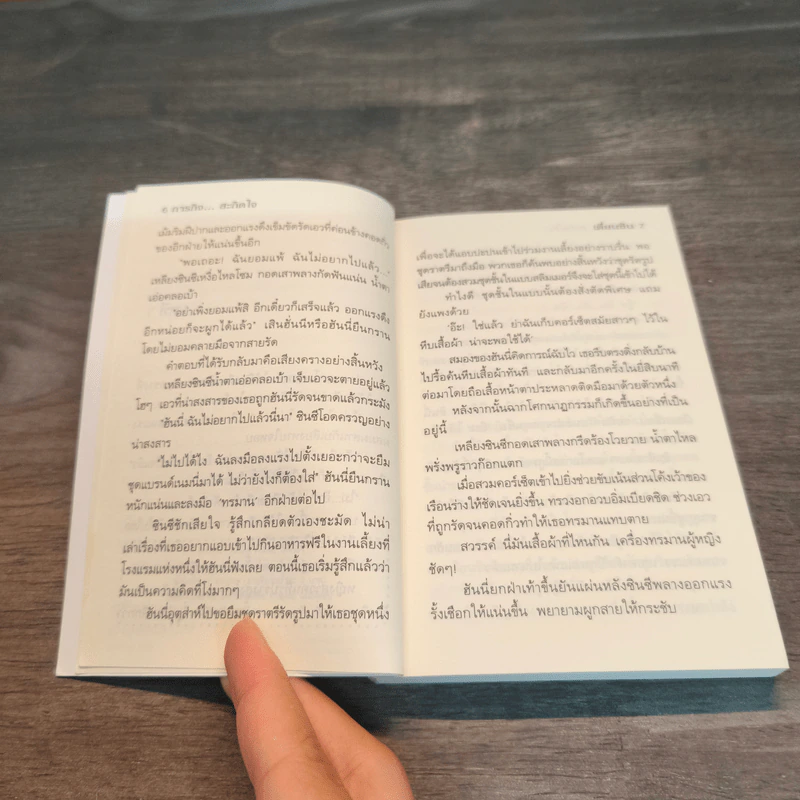 ๖ ภารกิจ... สะกิดใจ
เม้มริมฝีปากและออกแรงดึงเข็มขัดรัดเอวที่ค่อนข้างคอดกิ่ว
ของอีกฝ่ายให้แน่นขึ้นอีก
"พอเถอะ! ฉันยอมแพ้ ฉันไม่อยากไปแล้ว..."
เหลียงซินซีเหงื่อไหลโซม กอดเสาพลางกัดฟันแน่น น้ำตา
เอ่อคลอเบ้า
"อย่าเพิ่งยอมแพ้สิ อีกเดี๋ยวก็เสร็จแล้ว ออกแรงดึง
อีกหน่อยก็จะผูกได้แล้ว" เสินฮั่นนีหรือฮันนี่ยืนกราน
โดยไม่ยอมคลายมือจากสายรัด
คำตอบที่ได้รับกลับมาคือเสียงครางอย่างสิ้นหวัง
เหลียงซินซีน้ำตาเอ่อคลอเบ้า เจ็บเอวจะตายอยู่แล้ว
โฮๆ เอวที่น่าสงสารของเธอถูกฮันนี่รัดจนขาดแล้วกระมัง
"ฮันนี่ ฉันไม่อยากไปแล้วนี่นา" ซินซีโอดครวญอย่าง
น่าสงสาร
"ไม่ไปได้ไง ฉันลงมือลงแรงไปตั้งเยอะกว่าจะยืม
ชุดแบรนด์เนมนี่มาได้ ไม่ว่ายังไงก็ต้องใส่" ฮันนี่ยืนกราน
หนักแน่นและลงมือ 'ทรมาน' อีกฝ่ายต่อไป
ซินซีชักเสียใจ รู้สึกเกลียดตัวเองชะมัด ไม่น่า
เล่าเรื่องที่เธออยากแอบเข้าไปกินอาหารฟรีในงานเลี้ยงที่
โรงแรมแห่งหนึ่งให้ฮันนี่ฟังเลย ตอนนี้เธอเริ่มรู้สึกแล้วว่า
มันเป็นความคิดที่โง่มากๆ
ฮันนี่อุตส่าห์ไปขอยืมชุดราตรีรัดรูปมาให้เธอชุดหนึ่ง
7
เพื่อจะได้แอบปะปนเข้าไปร่วมงานเลี้ยงอย่างราบรื่น พอ
ชุดราตรีมาถึงมือ พวกเธอก็ค้นพบอย่างสิ้นหวังว่าชุดรัดรูป
เสียจนต้องสวมชุดชั้นในแบบสลิมเมอร์จึงจะใส่ชุดนี้เข้าไปได้
ทำไงดี ชุดชั้นในแบบนั้นต้องสั่งตัดพิเศษ แถม
ยังแพงด้วย
'อ๊ะ! ใช่แล้ว ย่าฉันเก็บคอร์เซ็ตสมัยสาวๆ ไว้ใน
หีบเสื้อผ้า น่าจะพอใช้ได้'
สมองของฮันนี่คิดการณ์ฉับไว เธอรีบตรงดิ่งกลับบ้าน
ไปรื้อค้นหีบเสื้อผ้าทันที และกลับมาอีกครั้งในยี่สิบนาที
ต่อมาโดยถือเสื้อหน้าตาประหลาดติดมือมาด้วยตัวหนึ่ง
หลังจากนั้นฉากโศกนาฏกรรมก็เกิดขึ้นอย่างที่เป็น
อยู่นี้
เหลียงซินซีกอดเสาพลางกรีดร้องโวยวาย น้ำตาไหล
พรั่งพรูราวก๊อกแตก
เมื่อสวมคอร์เซ็ตเข้าไปยิ่งช่วยขับเน้นส่วนโค้งเว้าของ
เรือนร่างให้ชัดเจนยิ่งขึ้น ทรวงอกอวบอิ่มเบียดชิด ช่วงเอว
ที่ถูกรัดจนคอดกิ่วทำให้เธอทรมานแทบตาย
สวรรค์ นี่มันเสื้อผ้าที่ไหนกัน เครื่องทรมานผู้หญิง
ชัดๆ!
ฮันนี่ยกฝ่าเท้าขึ้นยันแผ่นหลังซินซีพลางออกแรง
รั้งเชือกให้แน่นขึ้น พยายามผูกสายให้กระชับ